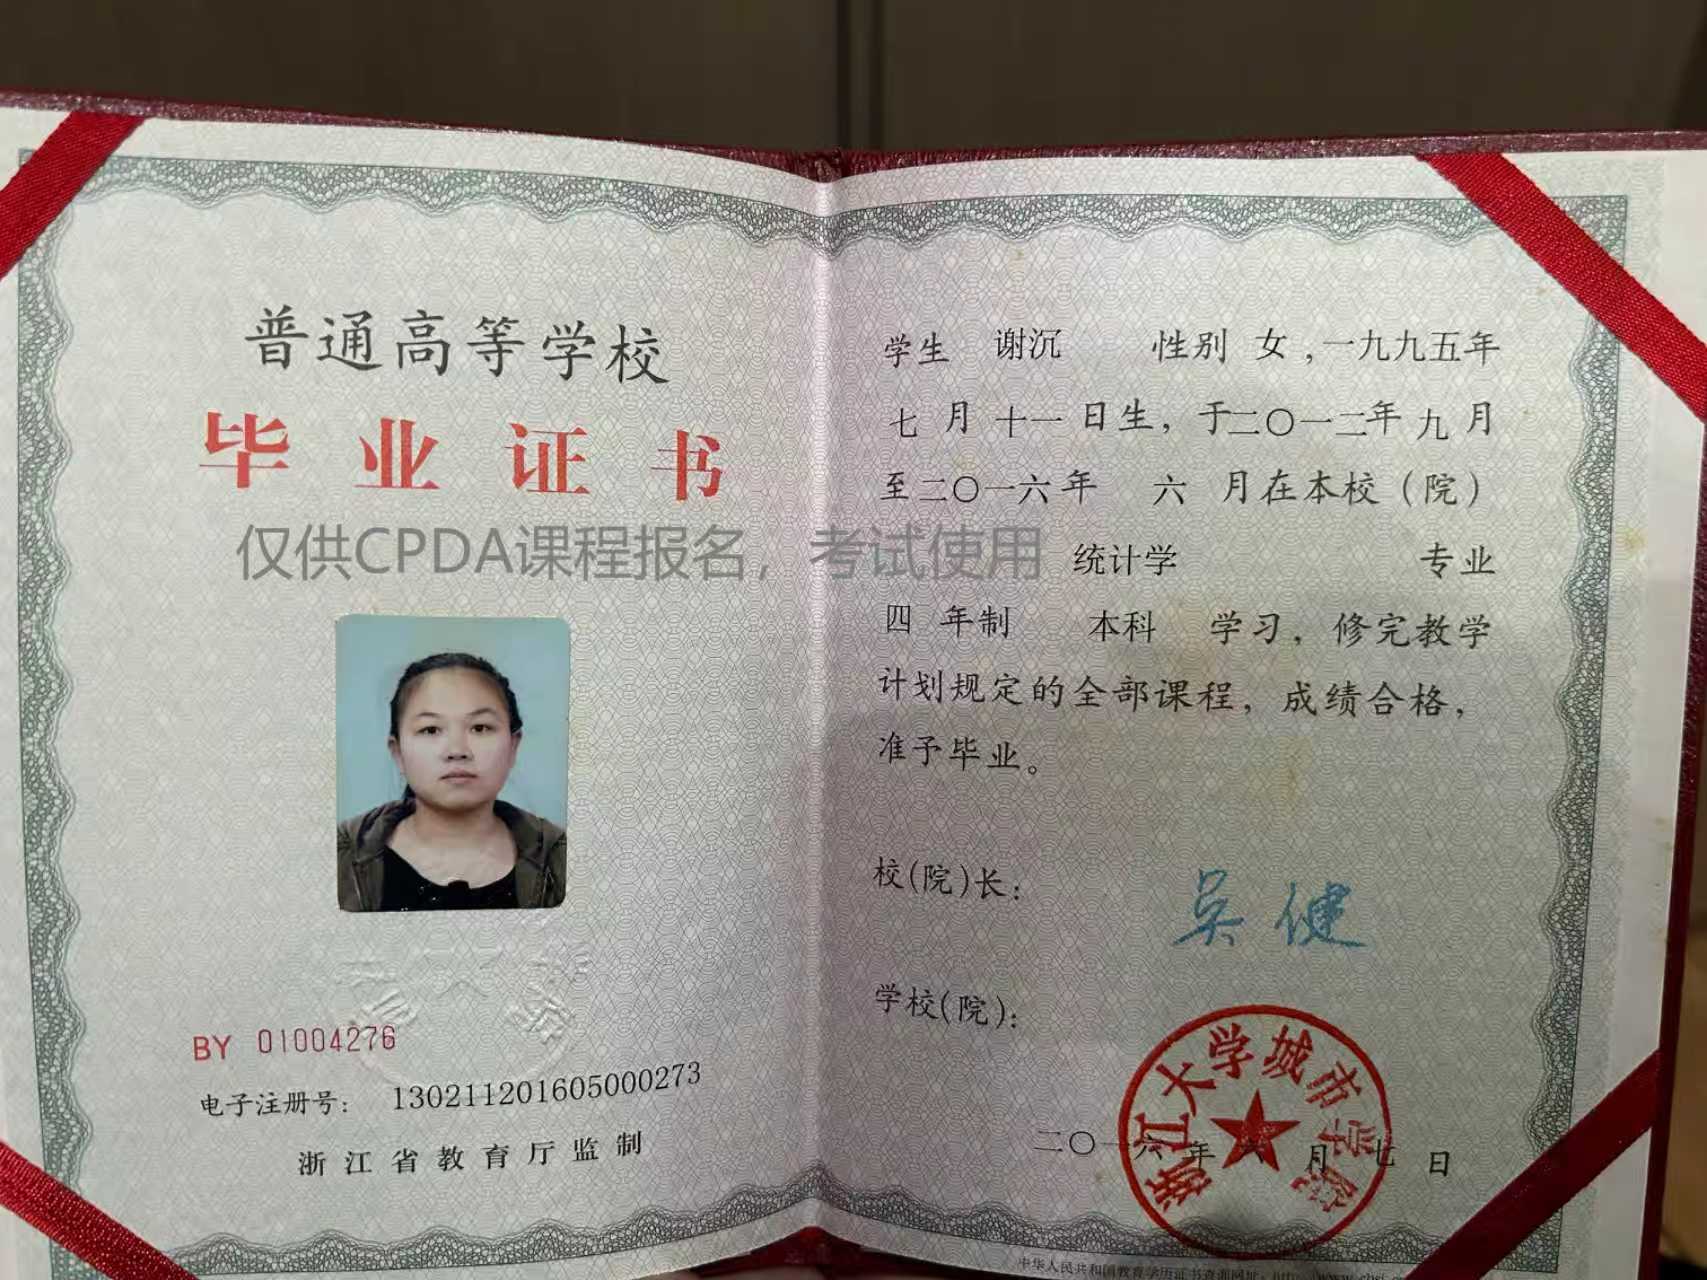 普通高等学校
毕业证书
仅供CPDA课程报名，考试使用
BY 01004276
电子注册号： 130211201605000273
浙江省教育厅监制
学生 谢沉 性别 女，一九九五年
七月十一日生，于二〇一二年九月
至二〇一六年 六 月在本校（院）
统计学 专业
四 年制 本科 学习，修完教学
计划规定的全部课程，成绩合格，
准予毕业。
校（院）长： 吴健
学校（院）：
浙江大学城市学院
二〇一六年六月七日
中华人民共和国教育学历证书查询网址：http://www.chsi.c